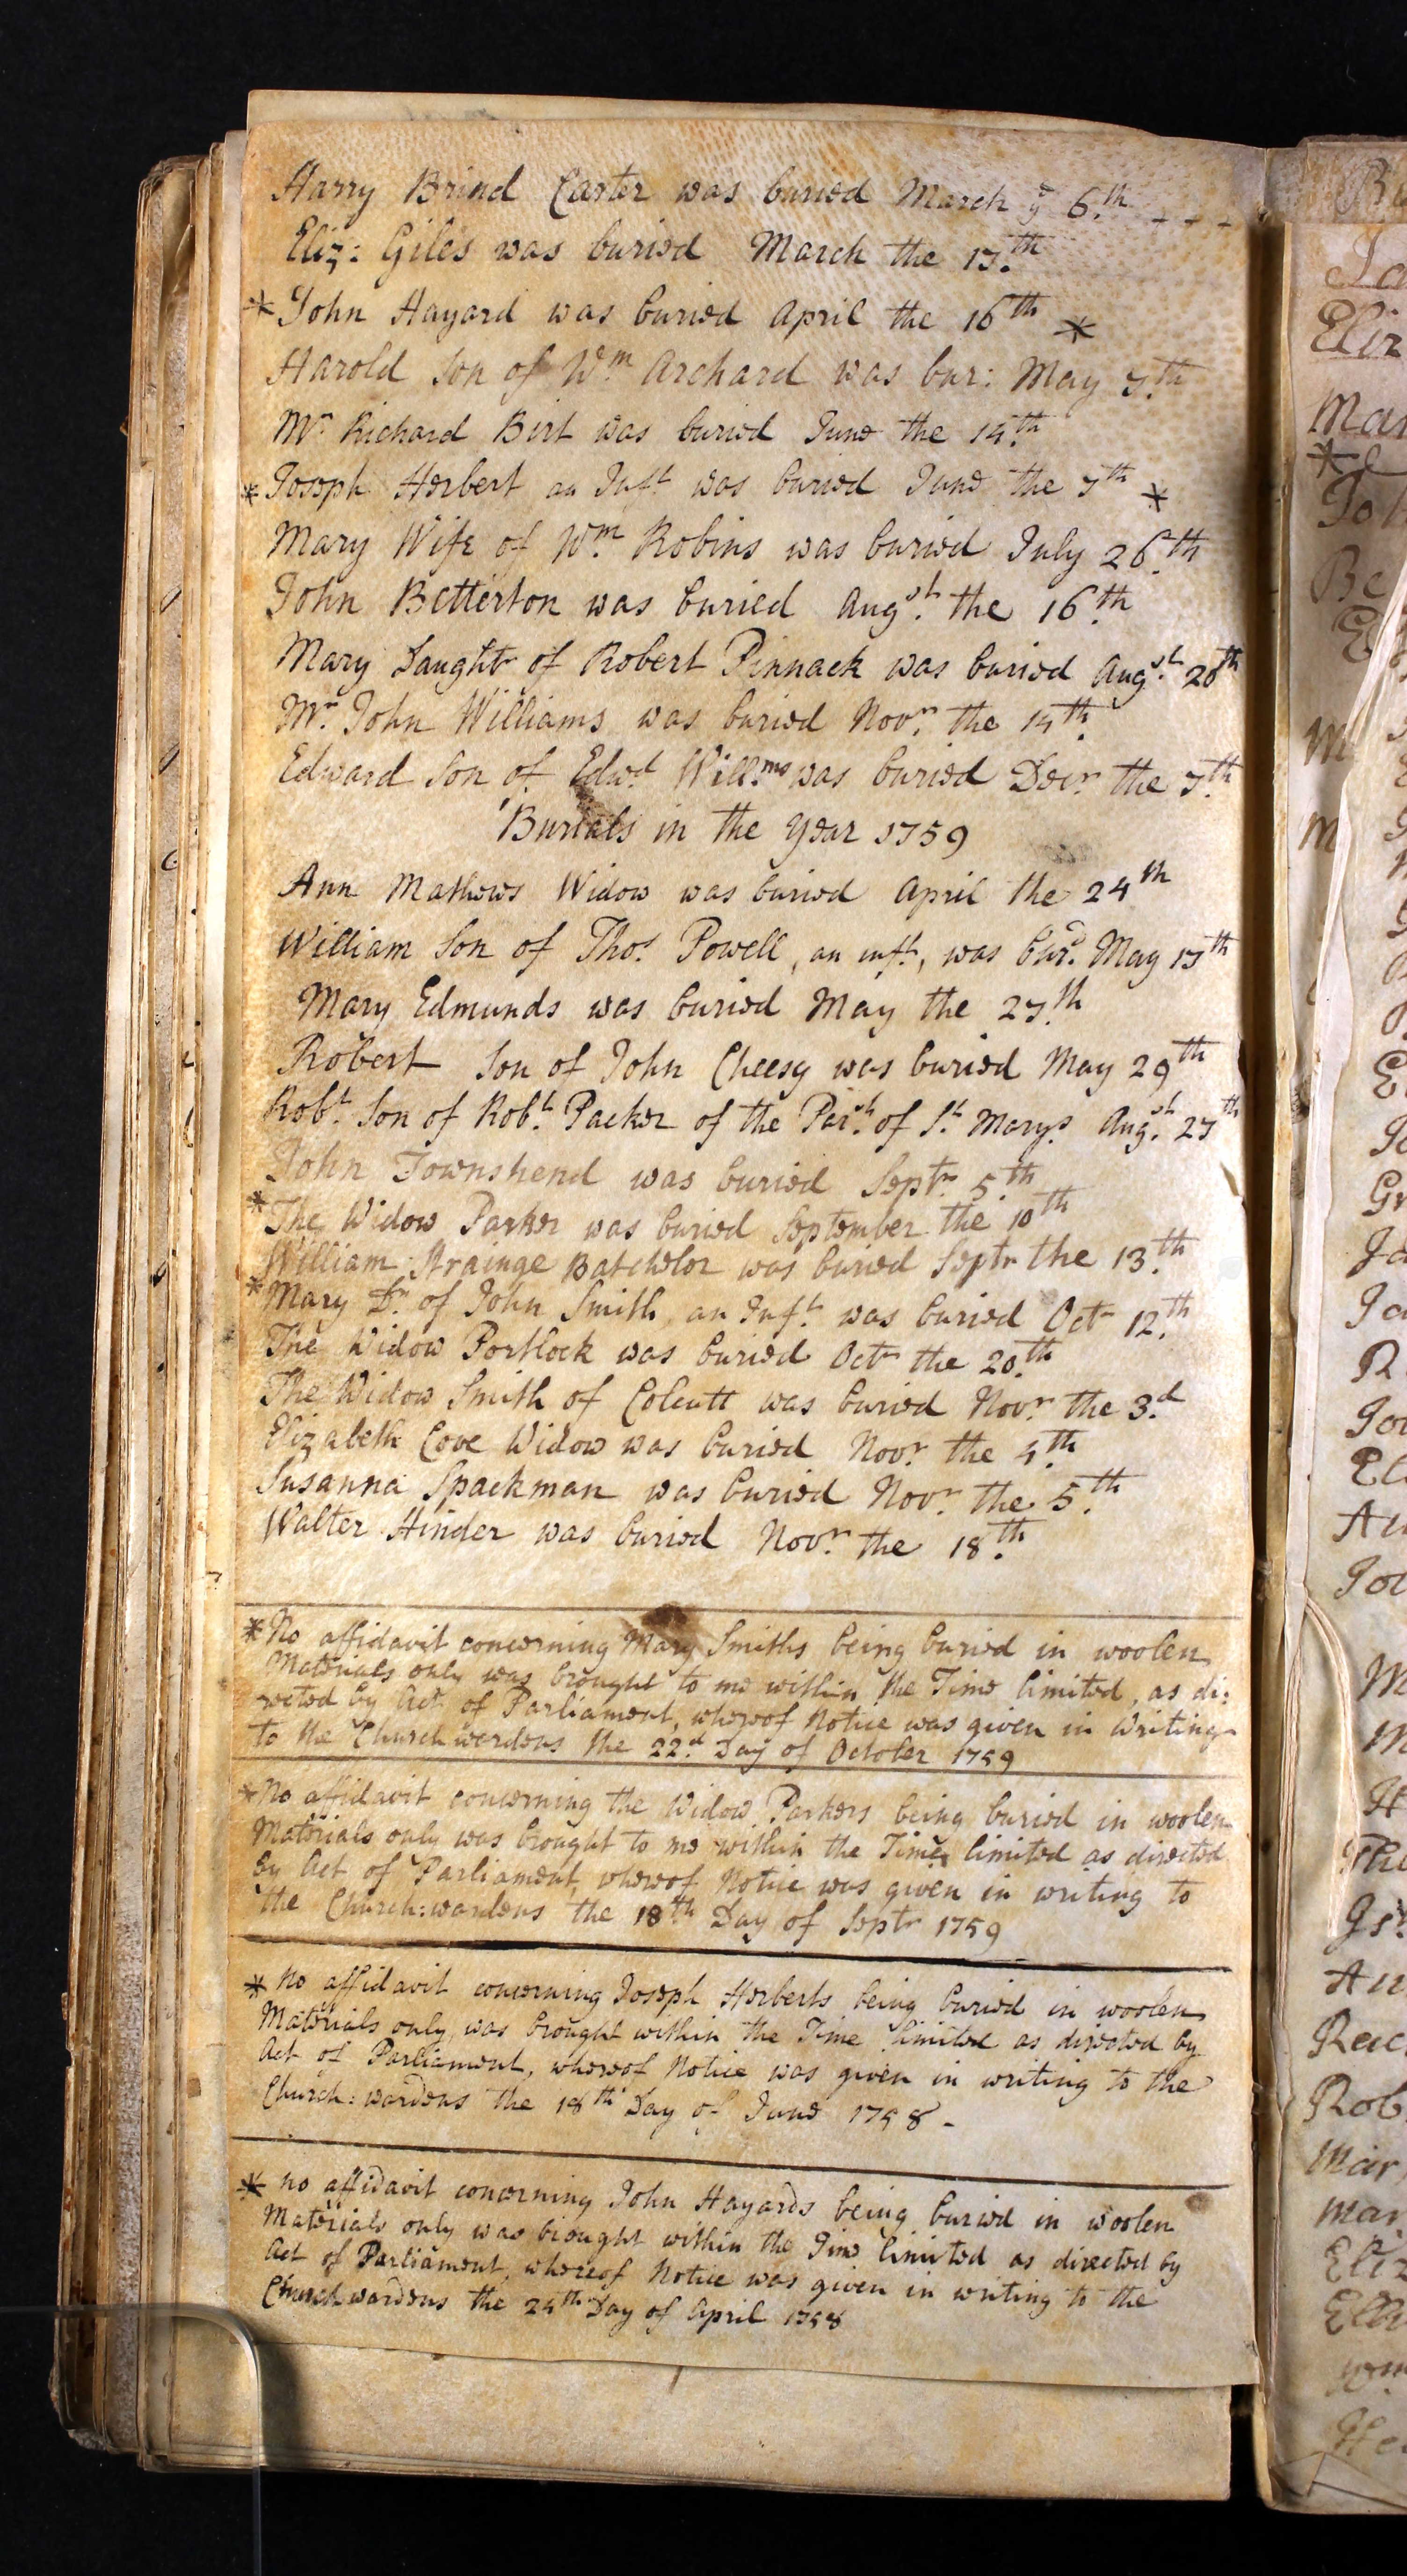 Harry Brind Carter was buried March ye 6.th - - -
Eliz: Giles was buried March the 17.th
*John Hayard was buried April the 16th *
Harold Son of Wm. Archard was bur: May 7.th
Mr. Richard Birt was buried June the 14.th
*Joseph Herbert an Inft. was buried June the 7th *
Mary Wife of Wm. Robins was buried July 26.th
John Betterton was buried Augst. the 16.th
Mary Daughtr of Robert Pinnack was buried Augst. 28th
Mr. John Williams was buried Novr. the 14th.
Edward Son of Edwd. Willms. was buried Decr. the 7.th
Burials in the Year 1759
Ann Mathews Widow was buried April the 24th
William Son of Thos. Powell, an inft., was burd. May 17th
Mary Edmunds was buried May the 27.th
Robert Son of John Cheesy was buried May 29th
Robt. Son of Robt. Packer of the Parsh. of St. Marys Augst. 27th
John Townshend was buried Septr. 5.th
*The Widow Parker was buried September the 10th
William Strainge Batchelor was buried Septr the 13.th
*Mary Dr. of John Smith, an Inft. was buried Octr 12.th
The Widow Portlock was buried Octr the 20.th
The Widow Smith of Colcutt was buried Novr. the 3.d
Elizabeth Cove Widow was buried Novr. the 4.th
Susanna Spackman was buried Novr. the 5.th
Walter Hinder was buried Novr. the 18.th
*No affidavit concerning Mary Smiths being buried in woolen
Materials only was brought to me within the Time limited, as di:
rected by Act of Parliament, whereof Notice was given in Writing
to the Churchwardens the 22.d Day of October 1759
*No affidavit concerning the Widow Parkers being buried in woolen
Materials only was brought to me within the Time limited as directed
by Act of Parliament, whereof Notice was given in writing to
the Church:wardens the 18th Day of Septr 1759
* No affidavit concerning Joseph Herberts being buried in woolen
Materials only, was brought within the Time limited as directed by
Act of Parliament, whereof Notice was given in writing to the
Church:wardens the 18th Day of June 1758 -
* No affidavit concerning John Hayards being buried in woolen
Materials only was brought within the Time limited as directed by
Act of Parliament, whereof Notice was given in writing to the
Churchwardens the 24th Day of April 1758